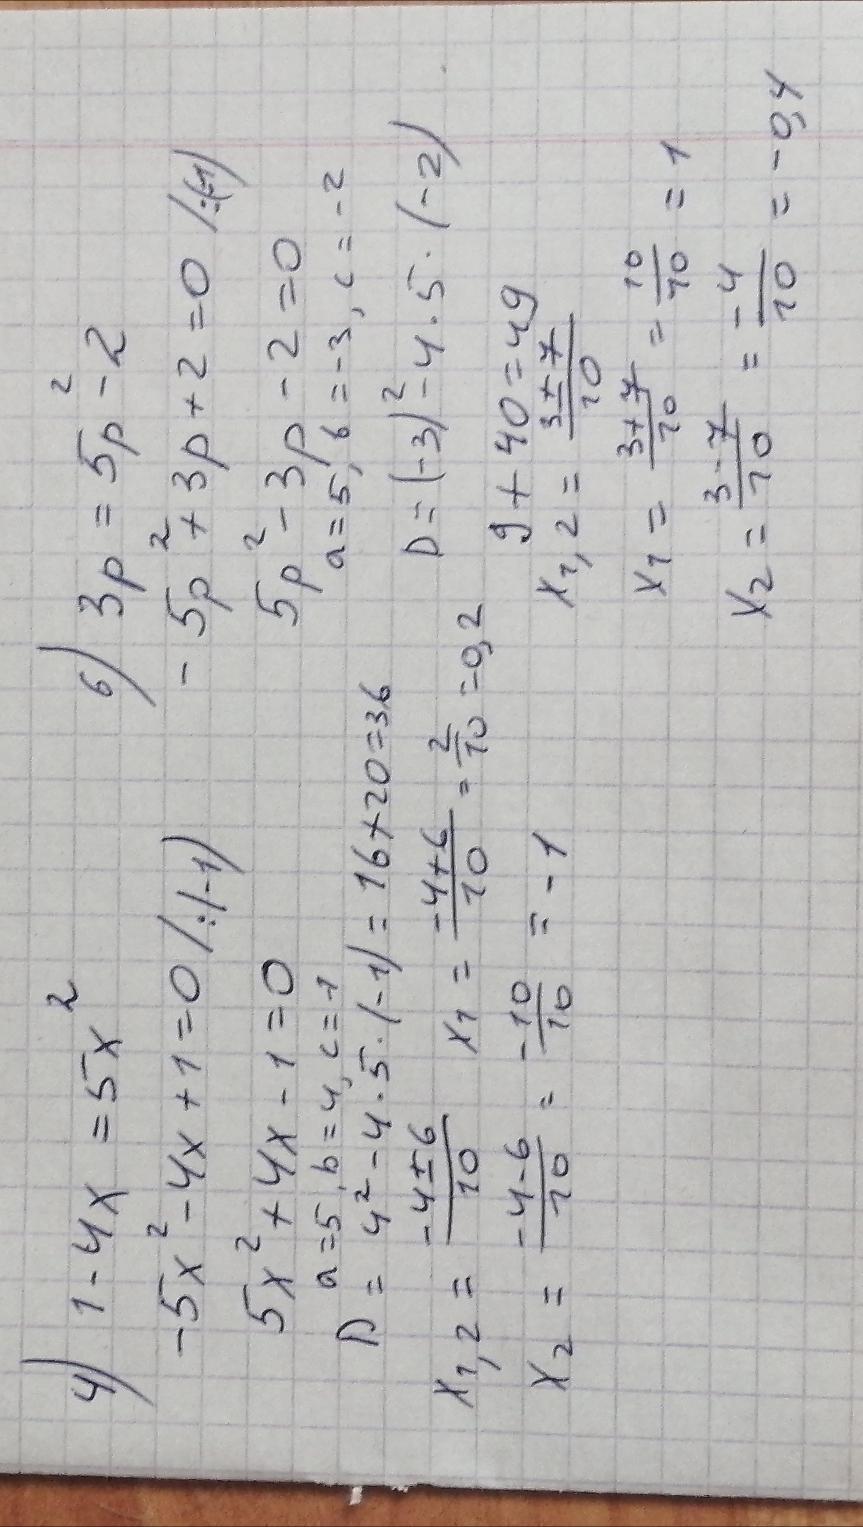 4) 1-4x = 5x²
-5x²-4x+1=0 /:(-1)
5x²+4x-1=0
a=5, b=4, c=-1
D = 4²-4·5·(-1) = 16+20=36
x1,2 = -4±6/10
x1 = -4+6/10 = 2/10 =0,2
x2 = -4-6/10 = -10/10 = -1
6) 3p = 5p²-2
-5p²+3p+2=0 /:(-1)
5p²-3p-2=0
a=5, b=-3, c=-2
D=(-3)²-4·5·(-2)
9+40=49
x1,2 = 3±7/10
x1 = 3+7/10 = 10/10 = 1
x2 = 3-7/10 = -4/10 = -0,4